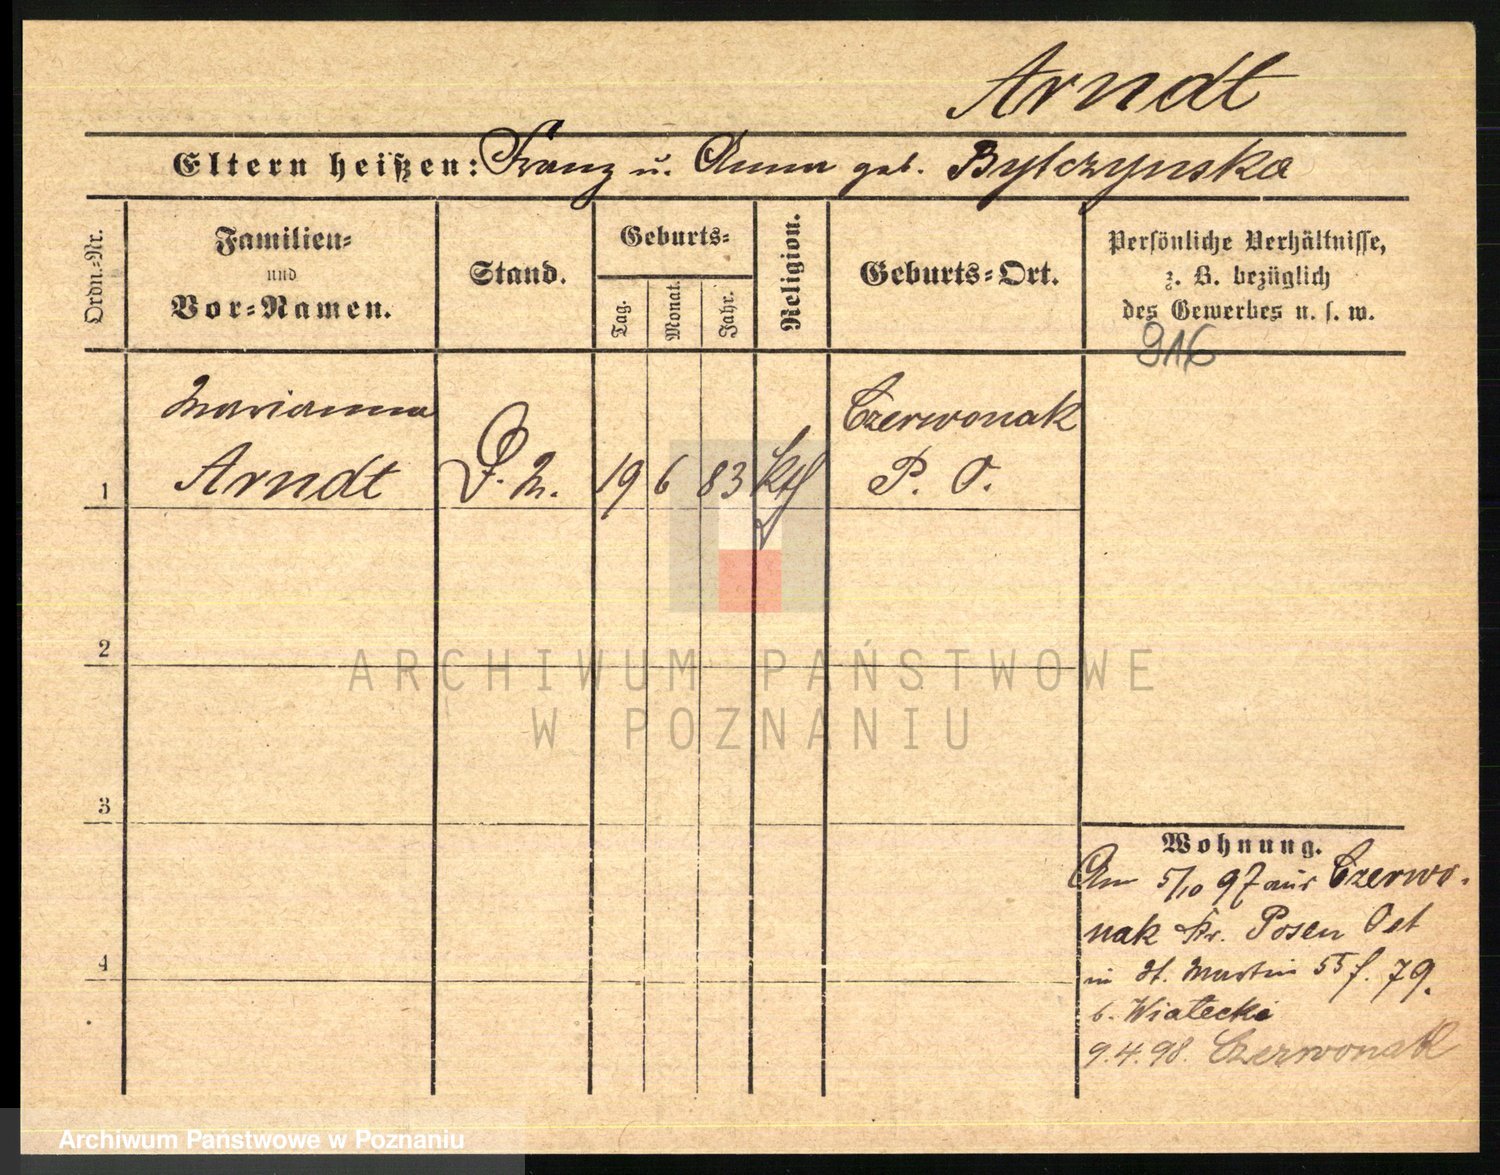 Arndt
Eltern heißen: Franz u. Anna geb. Bylczynska
Ordn.-Nr.
Familien-
und
Vor-Namen.
Stand.
Geburts-
Tag.
Monat.
Jahr.
Religion.
Geburts-Ort.
Persönliche Verhältnisse,
z. B. bezüglich
des Gewerbes u. s. w.
916
Marianna
Arndt
Czerwonak
1
19 6 83 kth
P. O.
2
3
4
Wohnung.
Am 5/10 97 aus Czerwo-
nak Kr. Posen Ost
in St. Martin 55 f. 79.
b. Wiatecki
9.4.98. Czerwonak
ARCHIWUM PAŃSTWOWE
W POZNANIU
Archiwum Państwowe w Poznaniu